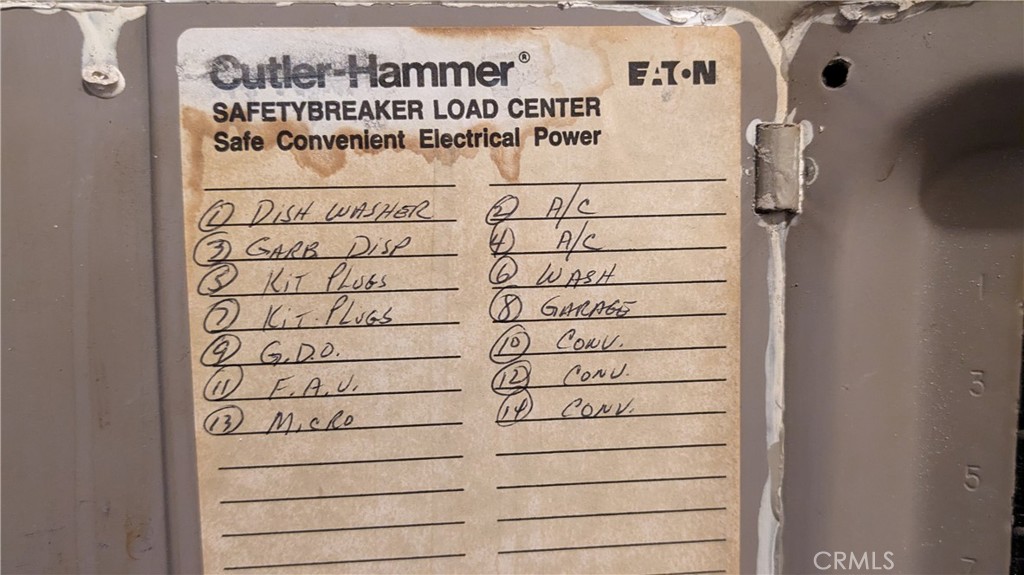 Cutler-Hammer®
EATON
SAFETYBREAKER LOAD CENTER
Safe Convenient Electrical Power
① DISH WASHER
② A/C
③ GARB DISP
④ A/C
⑤ KIT PLUGS
⑥ WASH
⑦ KIT. PLUGS
⑧ GARAGE
⑨ G.D.O.
⑩ CONV.
⑪ F.A.U.
⑫ CONV.
⑬ MICRO
⑭ CONV.
1
3
5
7
CRMLS